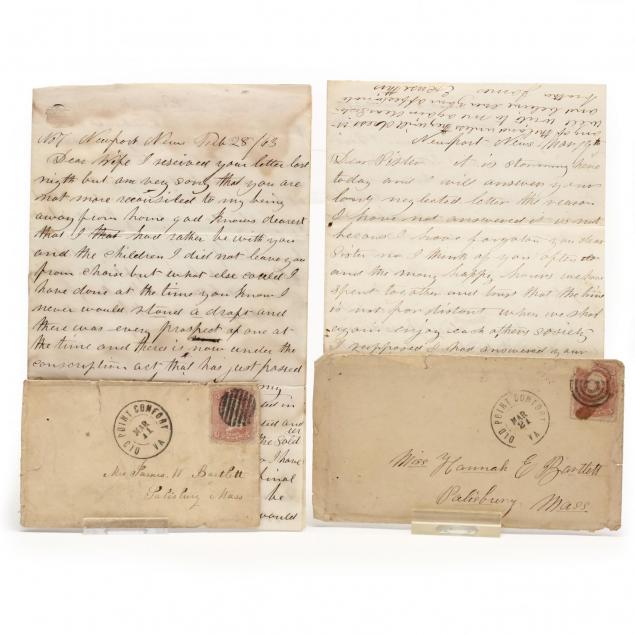 No 7 Newport News Feb 28/63
Dear Wife I received your letter last
nigth but am very sorry that you are
not more reconsiled to my being
away from home god knows dearest
that I that had rather be with you
and the children I did not leave you
from choice but what else could I
have done at the time you know I
never would stand a draft and
there was every prospect of one at
the time and there is now under the
conscription act that has just passed
my
ted in
ted and
the Gold
I have
final
be
would
OLD POINT COMFORT
MAR
11
VA
Mrs James W Bartlett
Salisbury Mass
will write to me again
and believe me your affectionate
brother James
Newport News Mar 19th
Dear Sister it is storming here
today and I will answer your
long neglected letter the reason
I have not answered it is not
because I have forgotton you dear
Sister no I think of you often
and the many happy hours we have
spent together and long that the time
is not far distant when we shal
again enjoy each others society
I supposed I had answered your
OLD POINT COMFORT
MAR
21
VA
Miss Hannah E Bartlett
Salisbury
Mass.